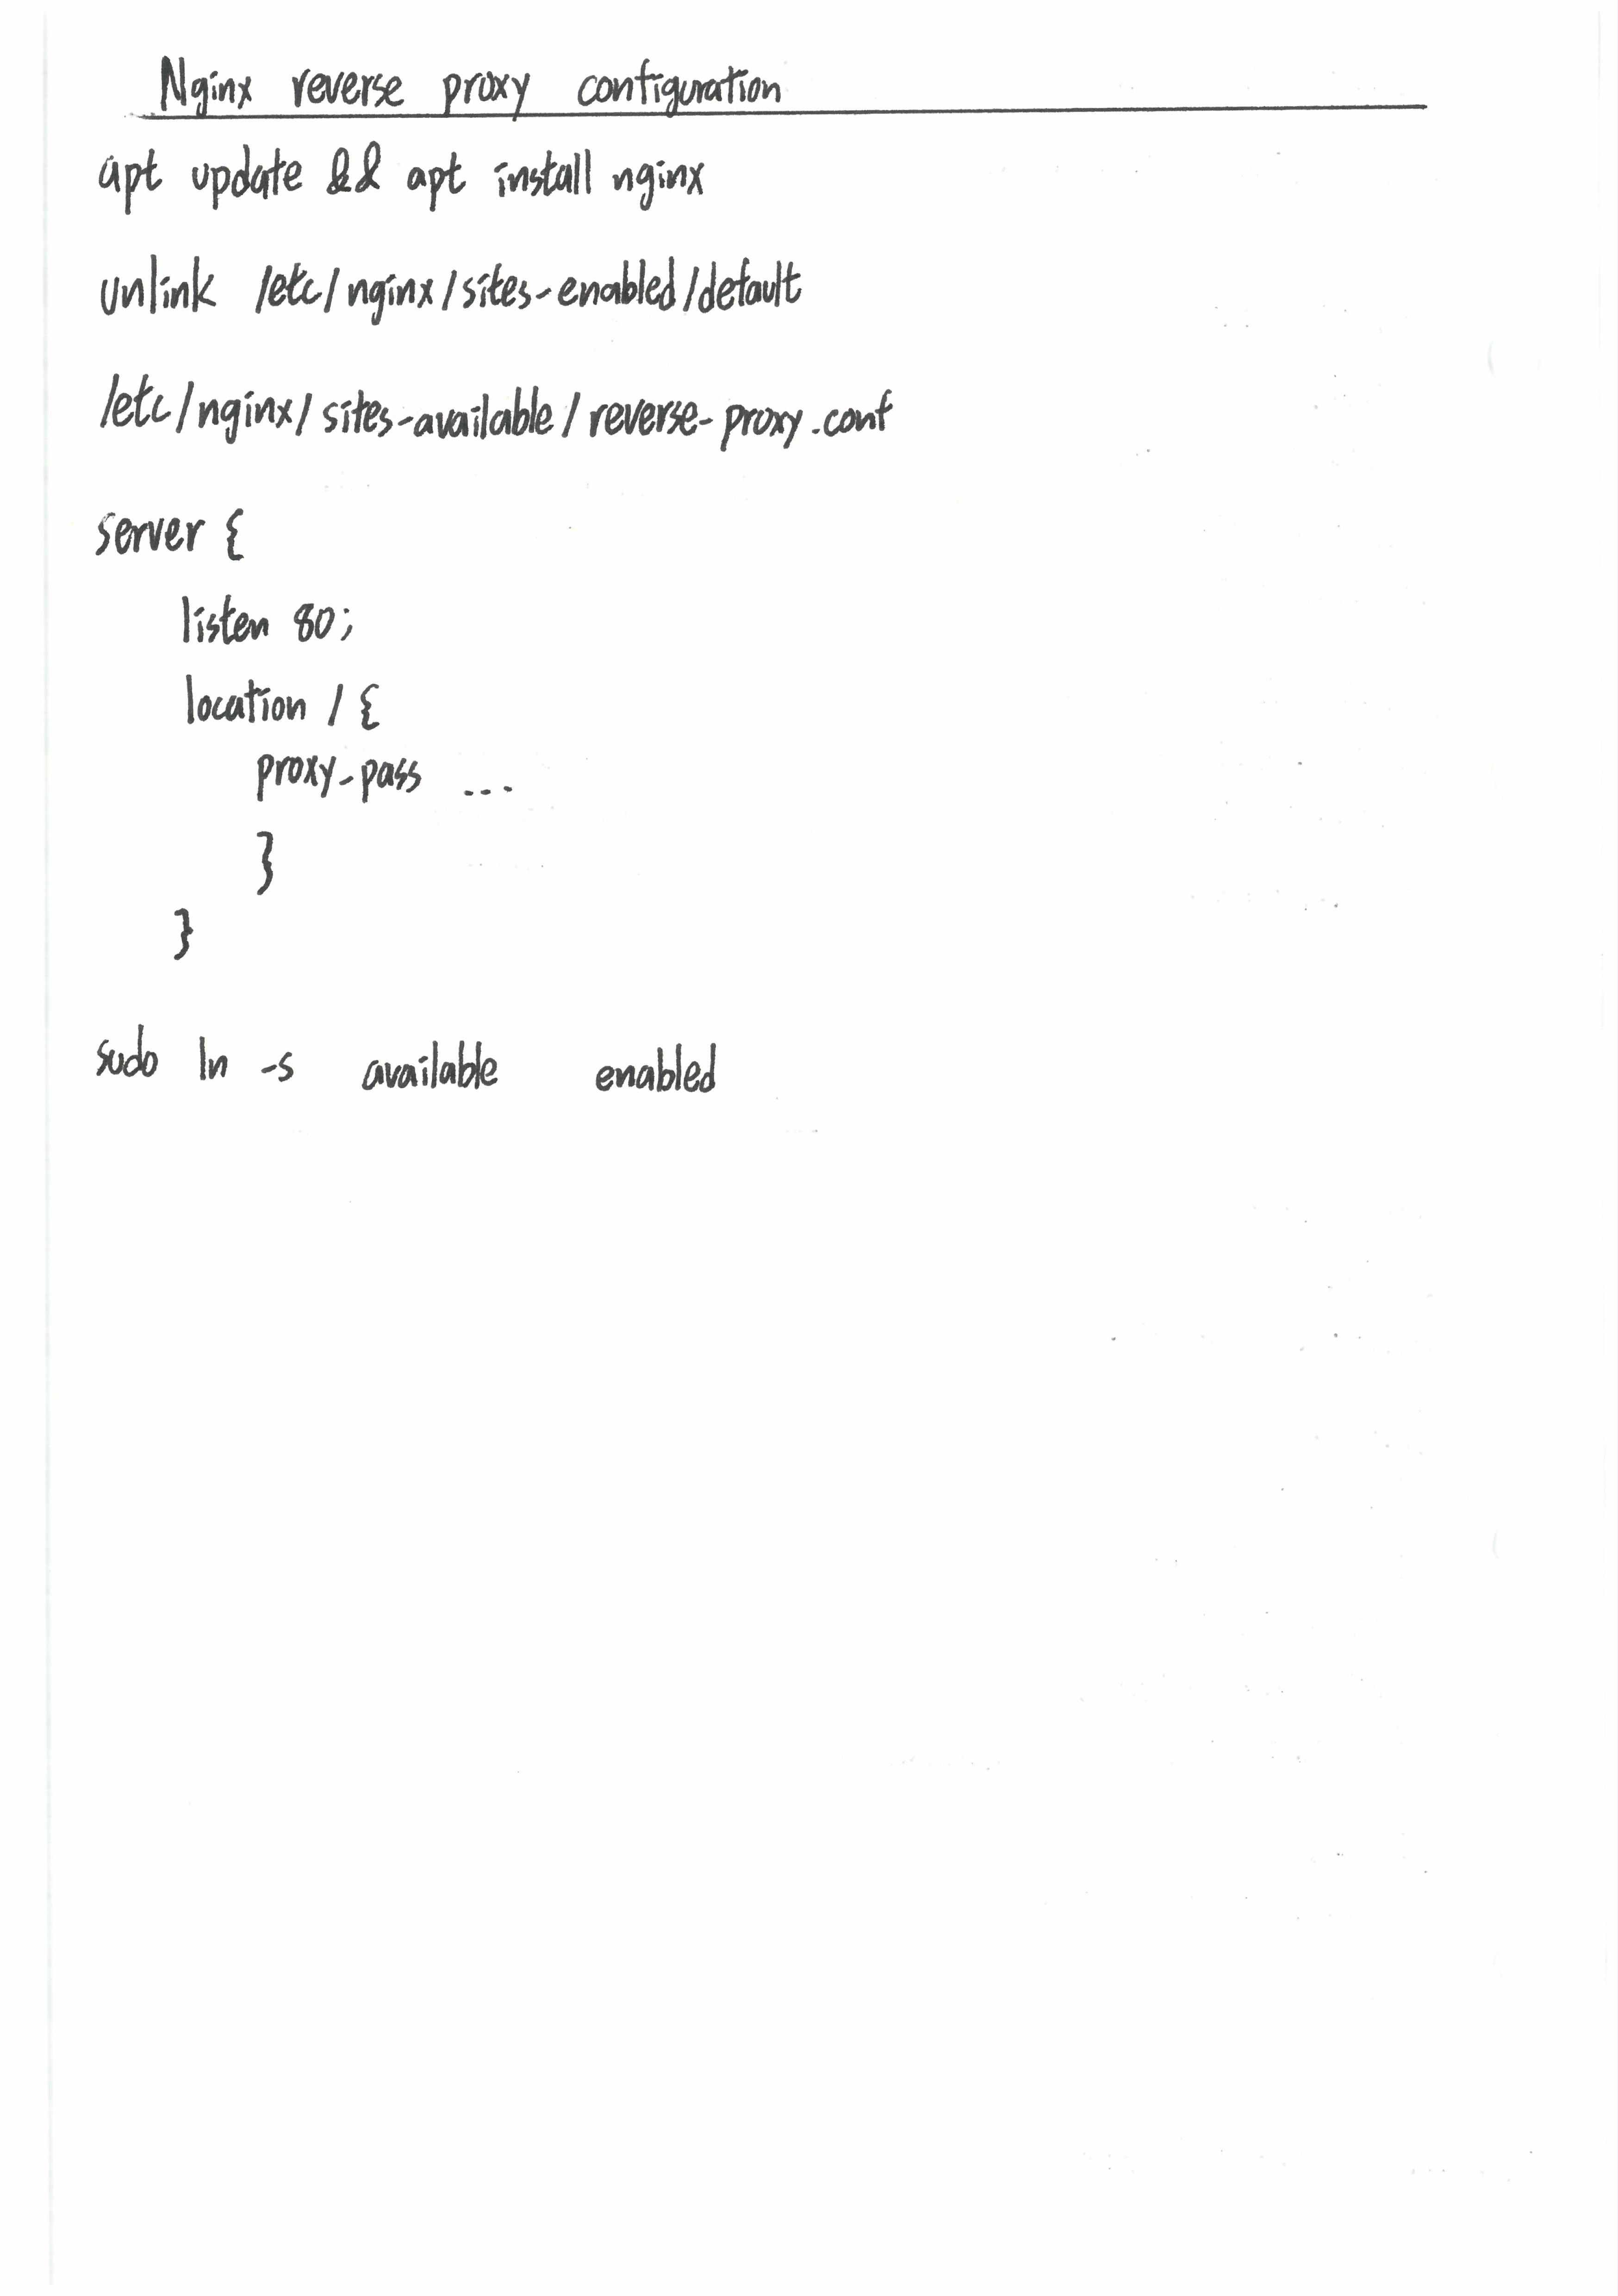 Nginx reverse proxy configuration
apt update && apt install nginx
unlink /etc/nginx/sites-enabled/default
/etc/nginx/sites-available/reverse-proxy.conf
server {
listen 80;
location / {
proxy-pass ...
}
}
sudo ln -s available enabled